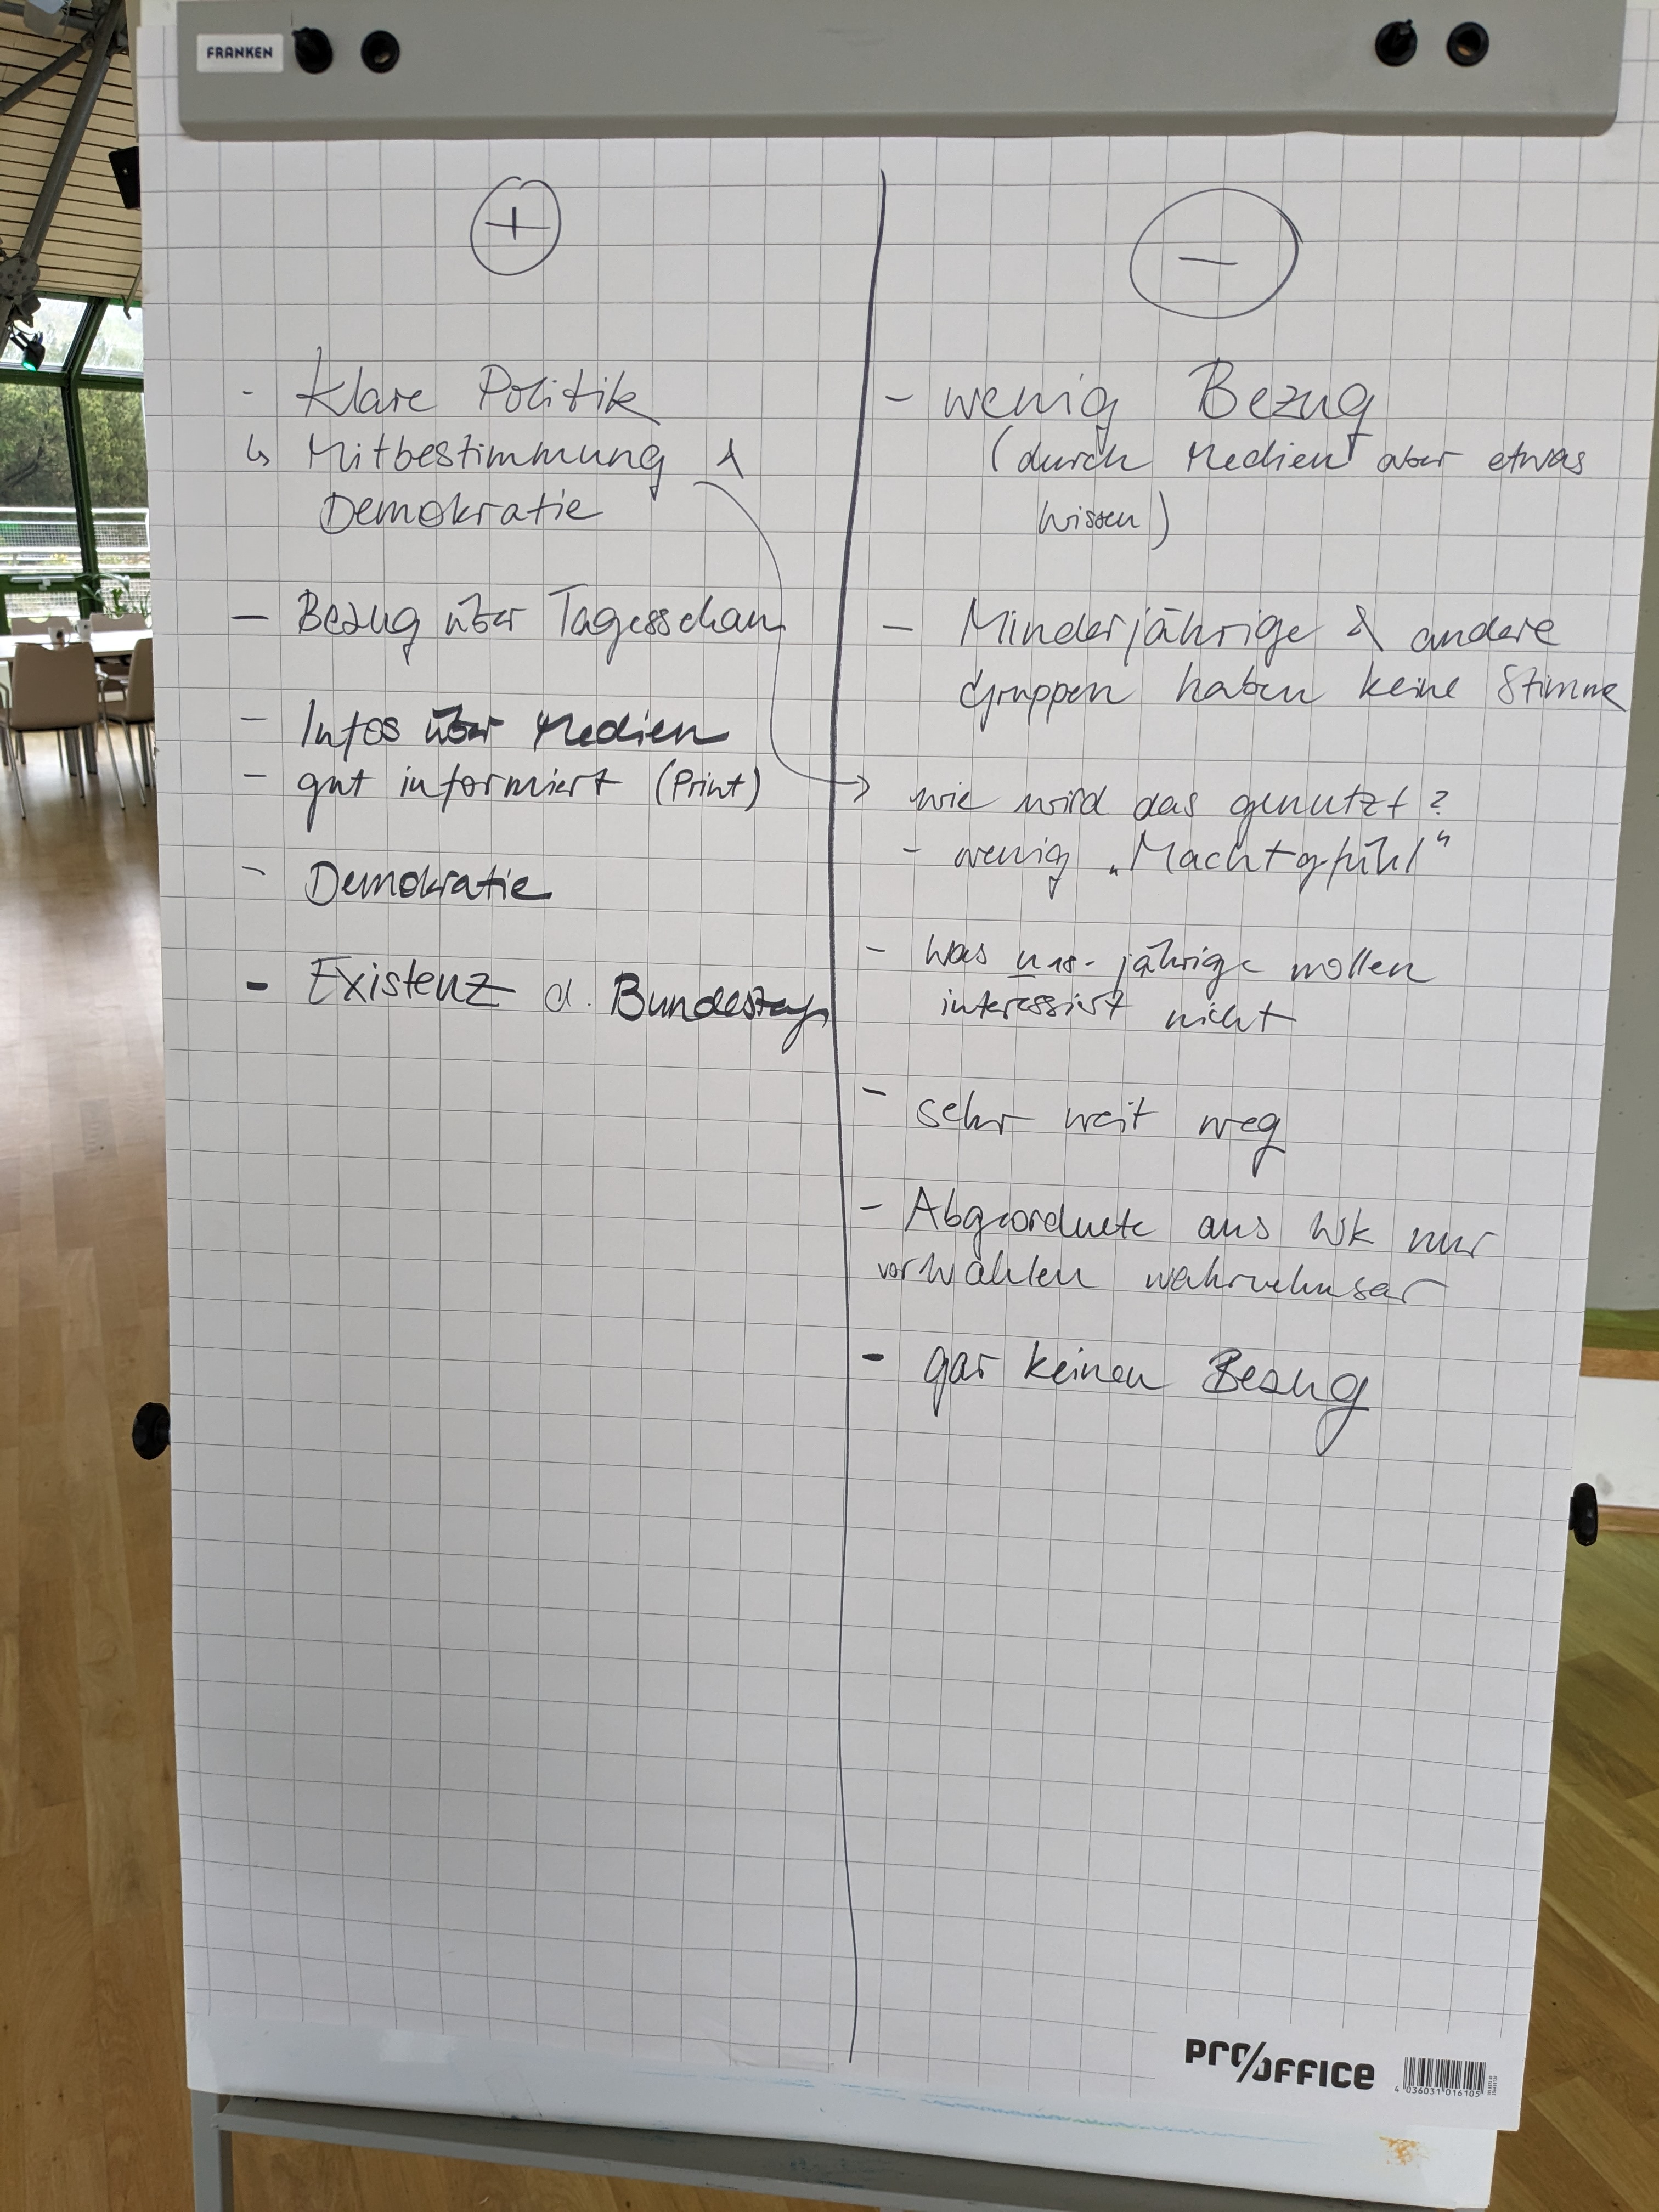 FRANKEN
+
- Klare Politik
↳ Mitbestimmung &
Demokratie
- Bezug über Tagesschau
- Infos über Medien
- gut informiert (Print)
- Demokratie
- Existenz d. Bundestags
-
- wenig Bezug
(durch Medien aber etwas
Wissen)
- Minderjährige & andere
Gruppen haben keine Stimme
→ wie wird das genutzt?
- wenig „Machtgfühl“
- Was u18-jährige wollen
interessiert nicht
- sehr weit weg
- Abgeordnete aus WK nur
vor Wahlen wahrnehmbar
- gar keinen Bezug
PRO/OFFICE
4 036031 016105